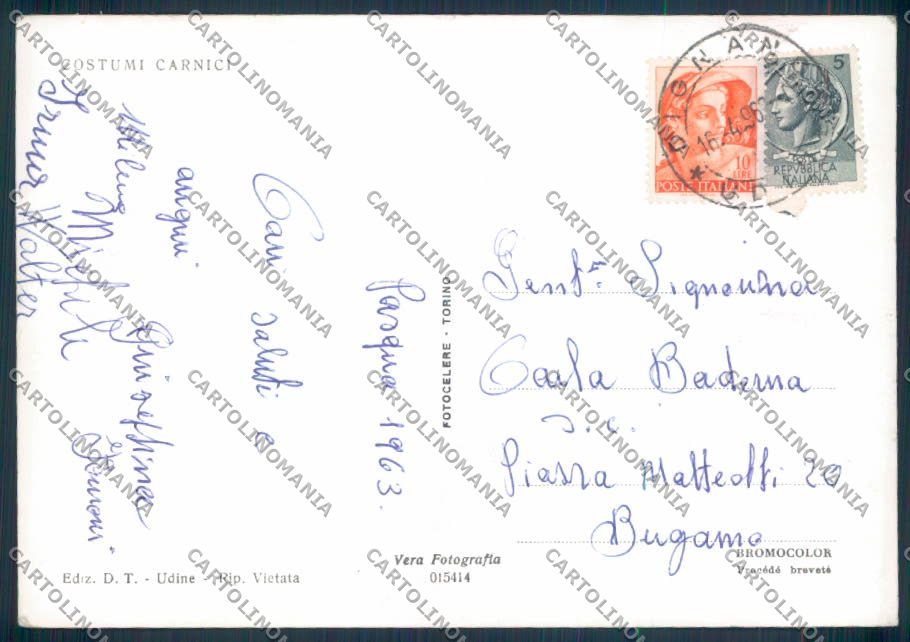 COSTUMI CARNICI
Pasqua 1963.
Cari saluti e
auguri
Giuseppina
Walter
FOTOCELERE - TORINO
BIGNANO
16.4.63
10
LIRE
POSTE ITALIANE
5
POSTE
REPVBBLICA
ITALIANA
Gent. Signorina
Carla Baderna
Piazza Matteotti 20
Bergamo
BROMOCOLOR
Procédé breveté
Vera Fotografia
015414
Ediz. D. T. - Udine - Rip. Vietata
CARTOLINOMANIA